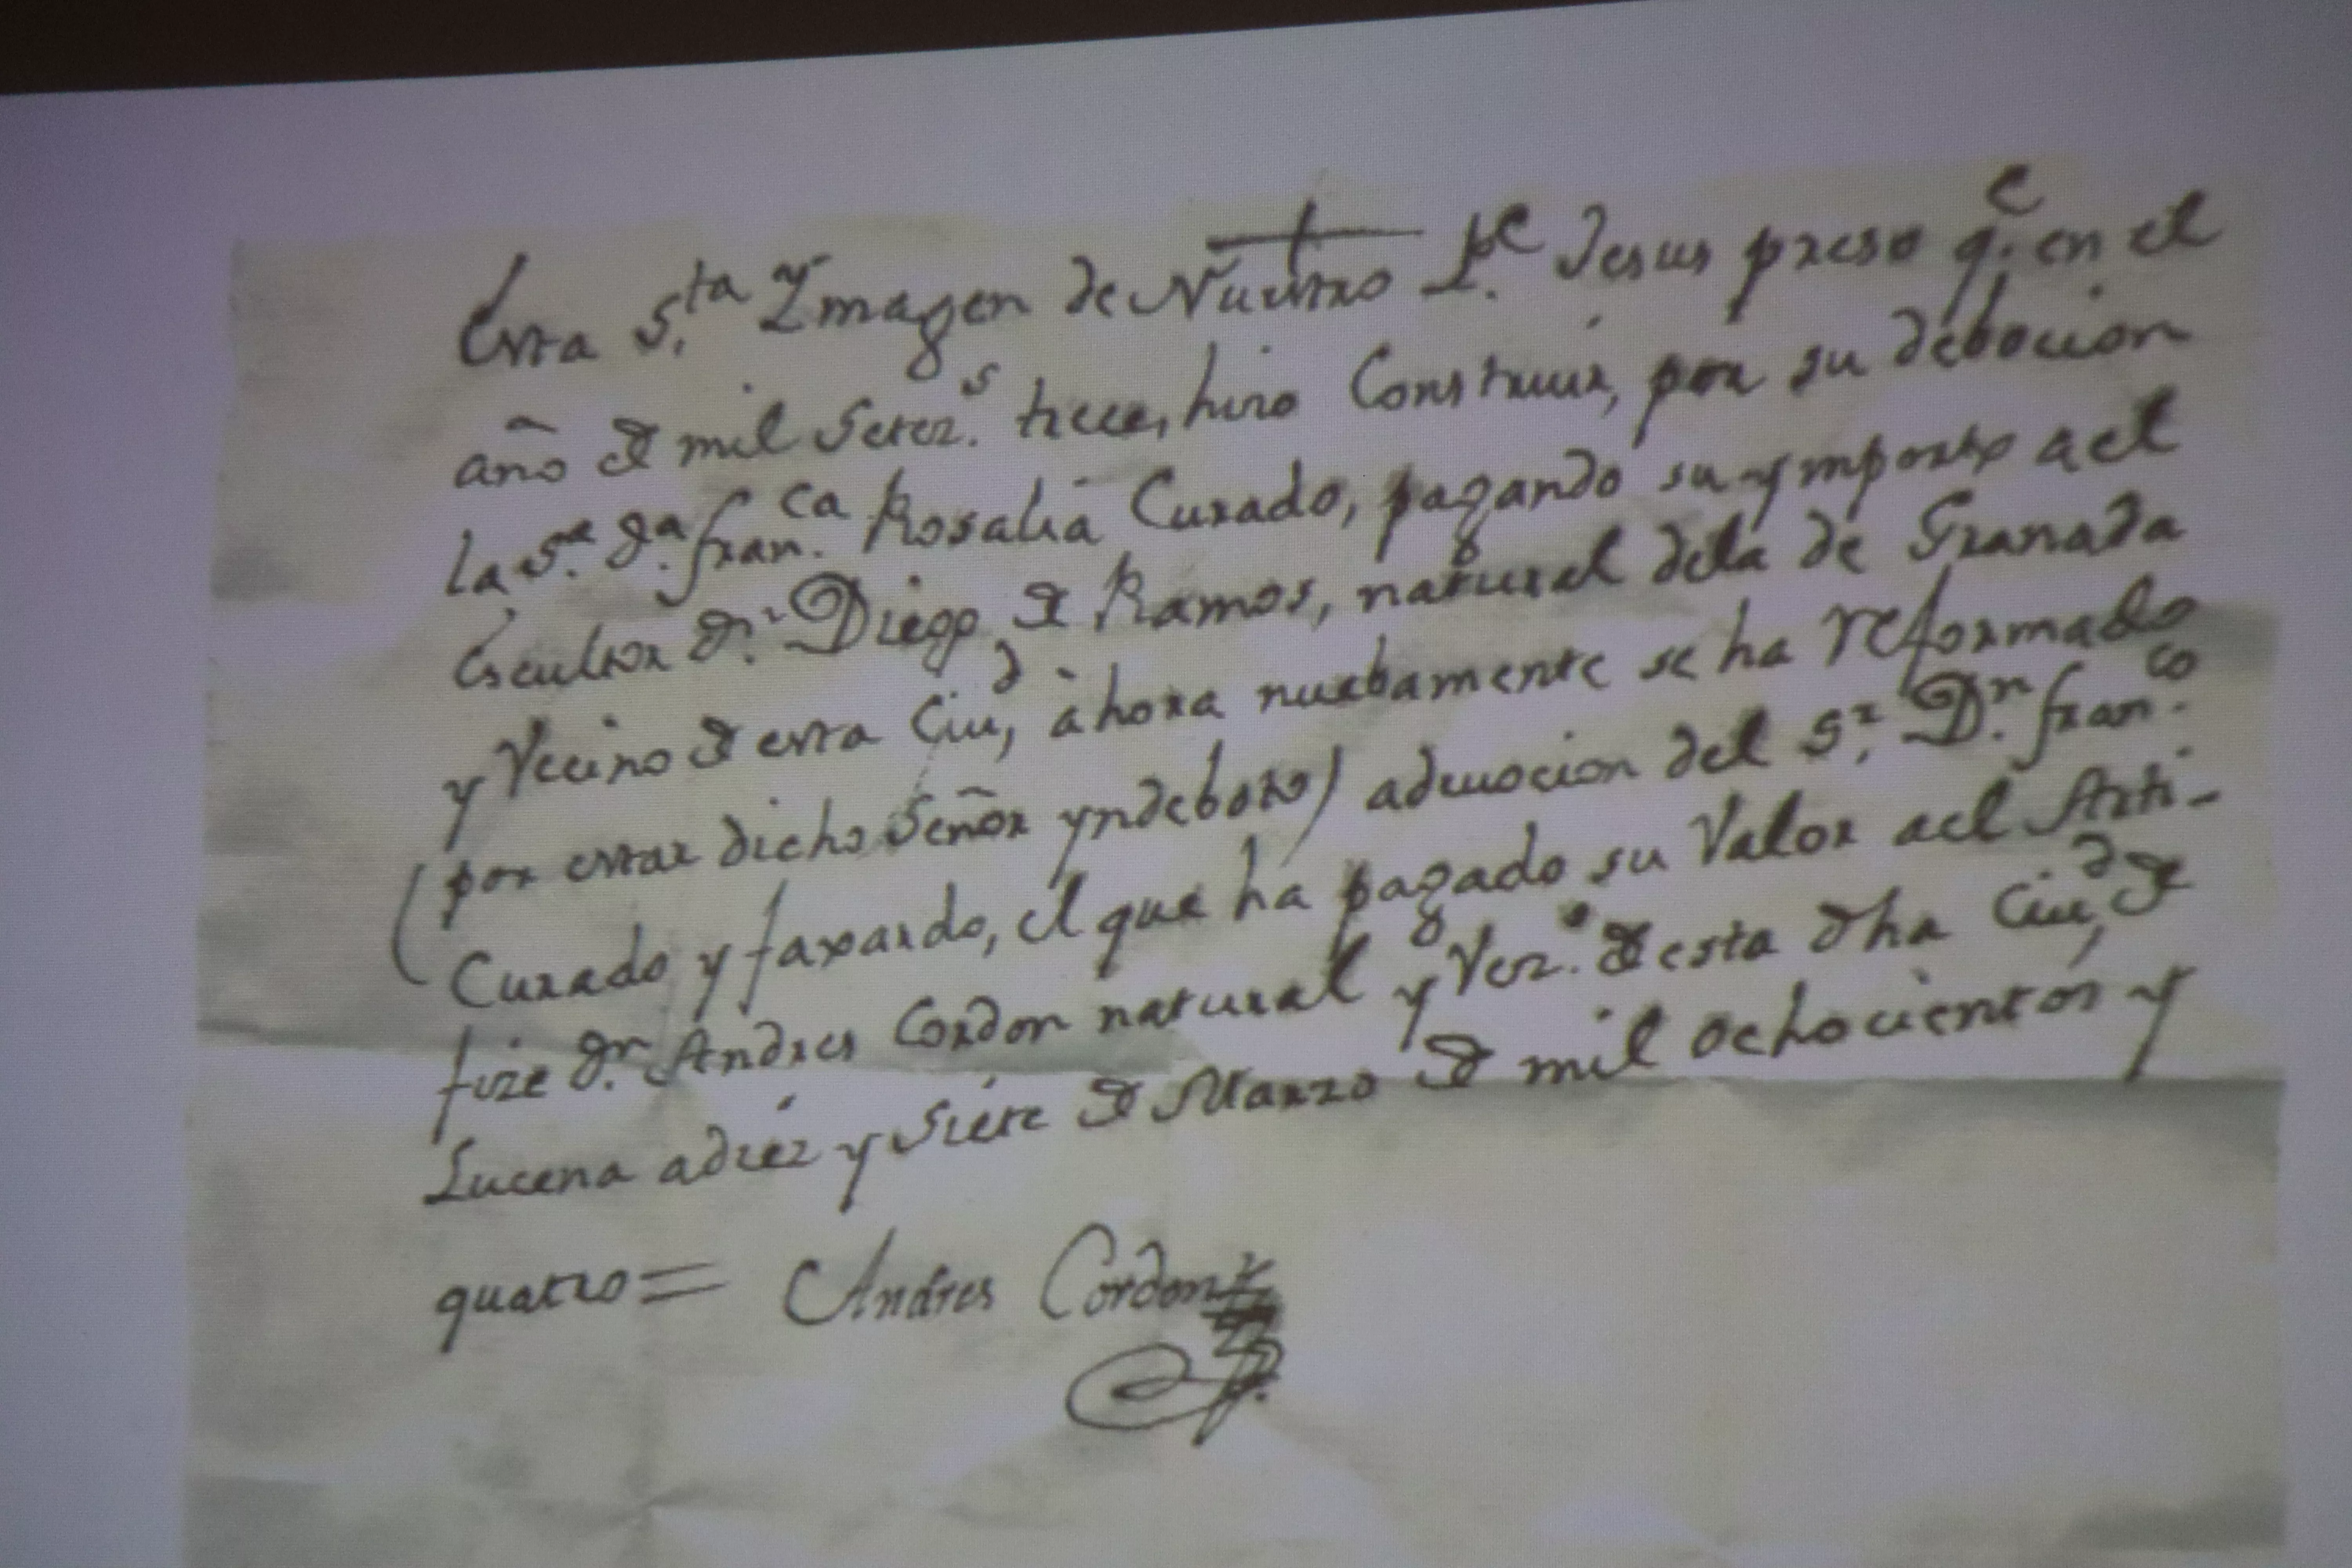 Esta S.ta Ymagen de Nuestro P.e Jesus preso q.e en el
año de mil Setez.s trece, hizo Construir, por su debocion
la S.a d.a fran.ca Rosalia Curado, pagando su ymporte a el
Escultor d.n Diego de Ramos, natural dela de Granada
y Vecino de esta Ciu.d, àhora nuebamente se ha reformado
(por estar dicho Señor yndeboto) a devocion del S.r D.n fran.co
Curado y faxardo, el que ha pagado su Valor a el Arti-
fize d.n Andres Cordon natural y Vez.o de esta dha Ciu.d de
Lucena a diez y Siete de Marzo de mil ochocientos y
quatro = Andres Cordon